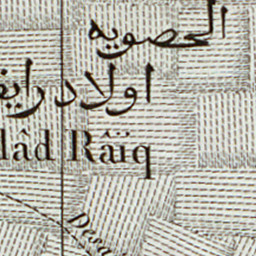 الحصويه
اولاد رايق
lâd Râïq
Dera